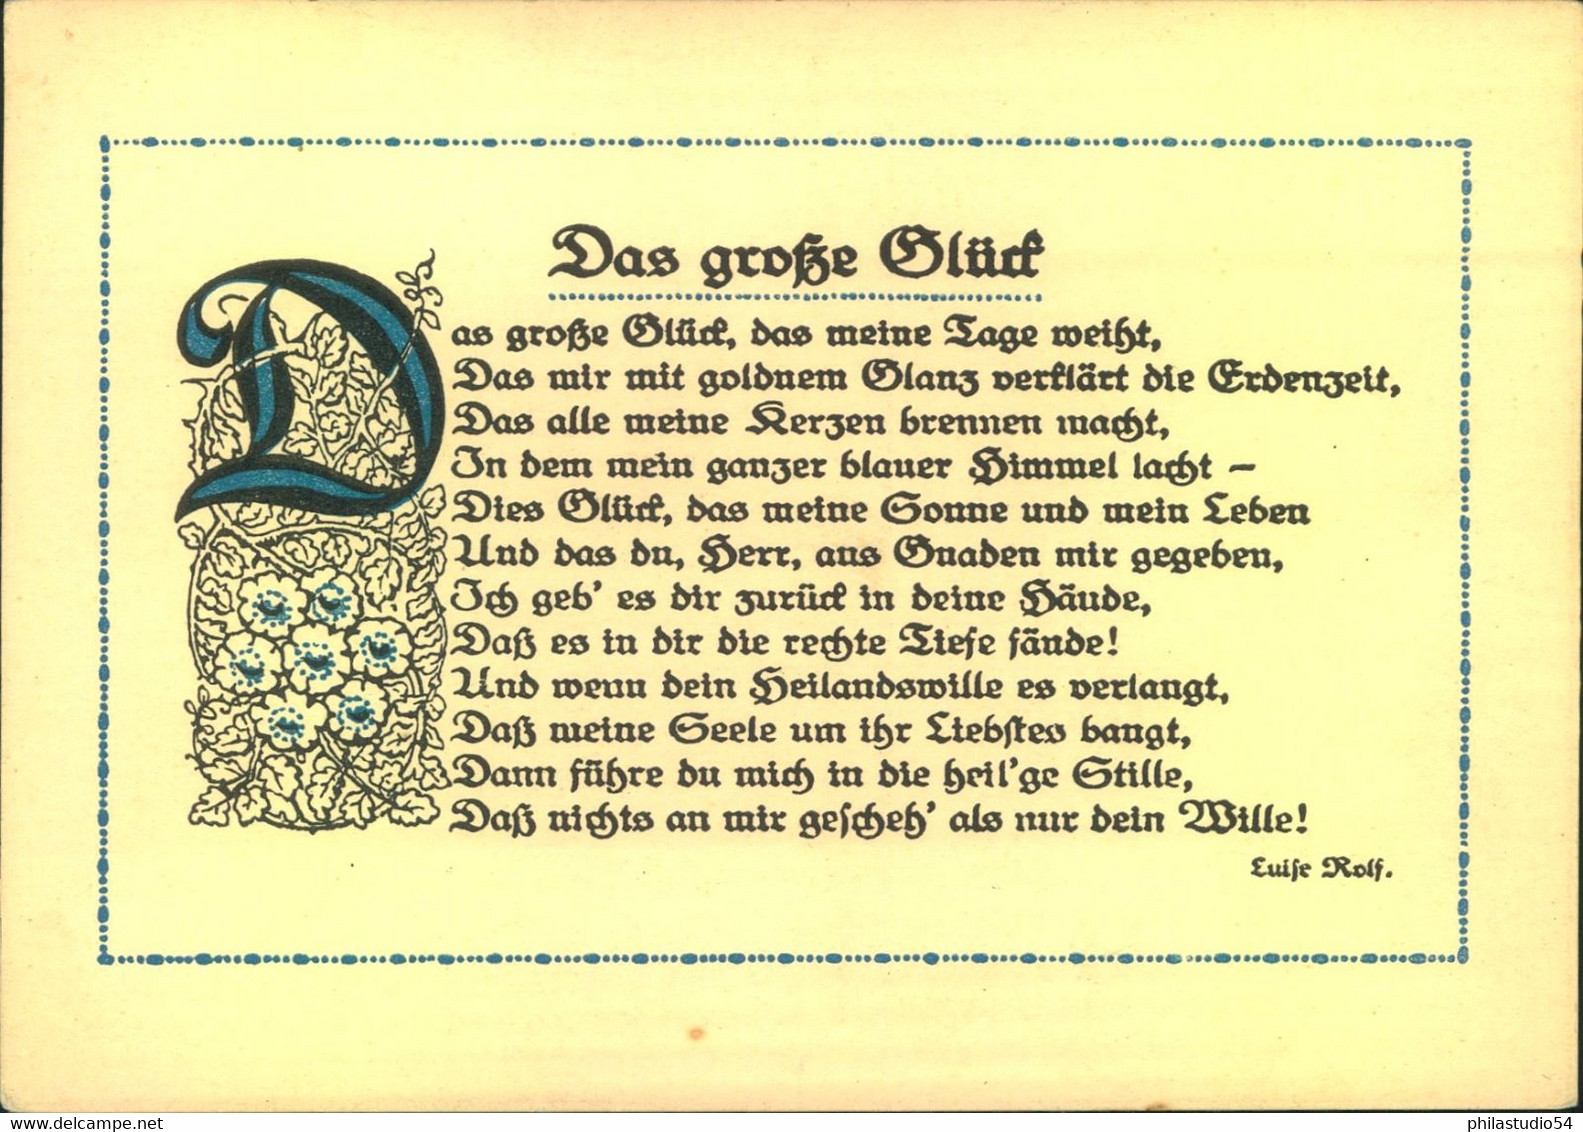 Das große Glück
Das große Glück, das meine Tage weiht,
Das mir mit goldnem Glanz verklärt die Erdenzeit,
Das alle meine Kerzen brennen macht,
In dem mein ganzer blauer Himmel lacht –
Dies Glück, das meine Sonne und mein Leben
Und das du, Herr, aus Gnaden mir gegeben,
Ich geb' es dir zurück in deine Hände,
Daß es in dir die rechte Tiefe fände!
Und wenn dein Heilandswille es verlangt,
Daß meine Seele um ihr Liebstes bangt,
Dann führe du mich in die heil'ge Stille,
Daß nichts an mir gescheh' als nur dein Wille!
Luise Rolf.
www.delcampe.net
philastudio54